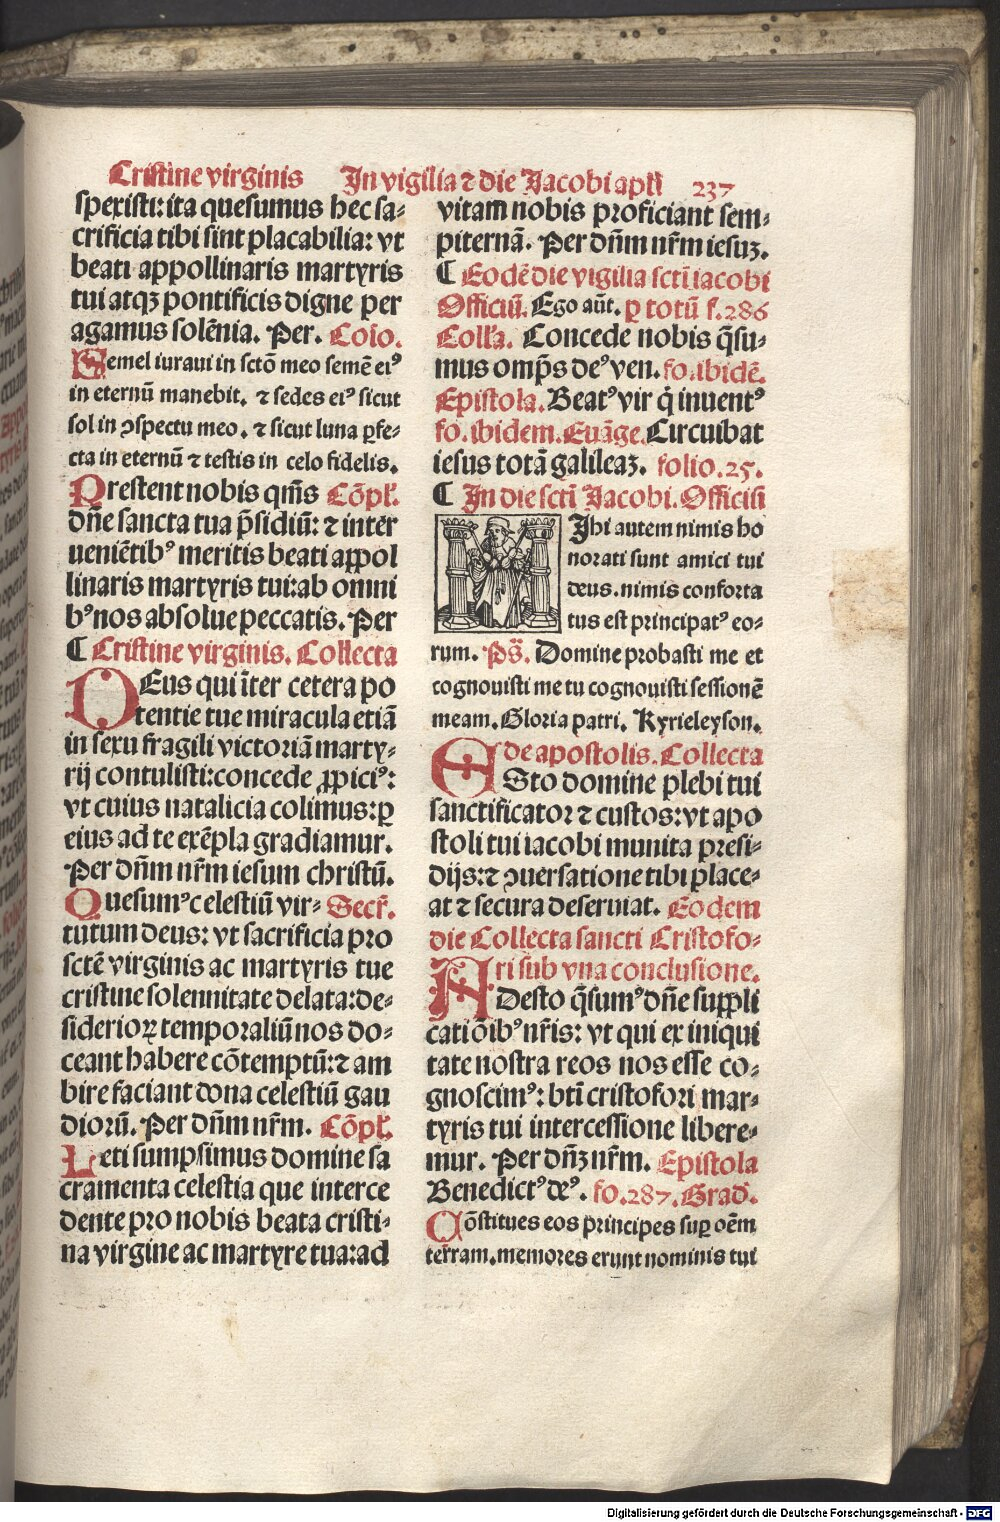 Cristine virginis In vigilia ⁊ die Jacobi apl̃i 237
spexisti: ita quesumus hec sa⸗
crificia tibi sint placabilia: vt
beati appollinaris martyris
tui atqꝫ pontificis digne per
agamus solẽnia. Per. Cõio.
Semel iuraui in sctõ meo semẽ eiꝰ
in eternũ manebit. ⁊ sedes eiꝰ sicut
sol in ꝯspectu meo. ⁊ sicut luna ꝑfe⸗
cta in eternũ ⁊ testis in celo fidelis.
Prestent nobis qm̃s Cõpl̃.
dñe sancta tua p̃sidiũ: ⁊ inter
ueniẽtibꝰ meritis beati appol
linaris martyris tui: ab omni
bꝰ nos absolue peccatis. Per
¶ Cristine virginis. Collecta
DEus qui ĩter cetera po
tentie tue miracula etiã
in sexu fragili victoriã marty⸗
rij contulisti: concede ꝓpiciꝰ:
vt cuius natalicia colimus: ꝑ
eius ad te exẽpla gradiamur.
Per dñm nr̃m iesum christũ.
Quesumꝰ celestiũ vir⸗ Secr̃.
tutum deus: vt sacrificia pro
sctẽ virginis ac martyris tue
cristine solennitate delata: de⸗
siderioꝝ temporaliũ nos do⸗
ceant habere cõtemptũ: ⁊ am
bire faciant dona celestiũ gau
diorũ. Per dñm nr̃m. Cõpl̃.
Leti sumpsimus domine sa
cramenta celestia que interce
dente pro nobis beata cristi⸗
na virgine ac martyre tua: ad
vitam nobis proficiant sem⸗
piternã. Per dñm nr̃m iesuꝫ.
¶ Eodẽ die vigilia scti iacobi
Officiũ. Ego aũt. ꝑ totũ f. 286
Coll'a. Concede nobis q̃su⸗
mus omp̃s deꝰ ven. fo. ibidẽ.
Epistola. Beatꝰ vir q̃ inuentꝰ
fo. ibidem. Euãge. Circuibat
iesus totã galileaꝫ. folio. 25.
¶ In die scti Jacobi. Officiũ
Ihi autem nimis ho
norati sunt amici tui
deus. nimis conforta
tus est principatꝰ eo⸗
rum. Ps̃. Domine probasti me et
cognouisti me tu cognouisti sessionẽ
meam. Gloria patri. Kyrieleyson.
de apostolis. Collecta
ESto domine plebi tui
sanctificator ⁊ custos: vt apo
stoli tui iacobi munita presi⸗
dijs: ⁊ ꝯuersatione tibi place⸗
at ⁊ secura deseruiat. Eodem
die Collecta sancti Cristofo⸗
ri sub vna conclusione.
ADesto q̃sumꝰ dñe suppli
cati õibꝰ nr̃is: vt qui ex iniqui
tate nostra reos nos esse co⸗
gnoscimꝰ: bti cristofori mar⸗
tyris tui intercessione libere⸗
mur. Per dñꝫ nr̃m. Epistola
Benedictꝰ deꝰ. fo. 287. Grad̃.
Cõstitues eos principes suꝑ oẽm
terram. memores erunt nominis tui
Digitalisierung gefördert durch die Deutsche Forschungsgemeinschaft - DFG